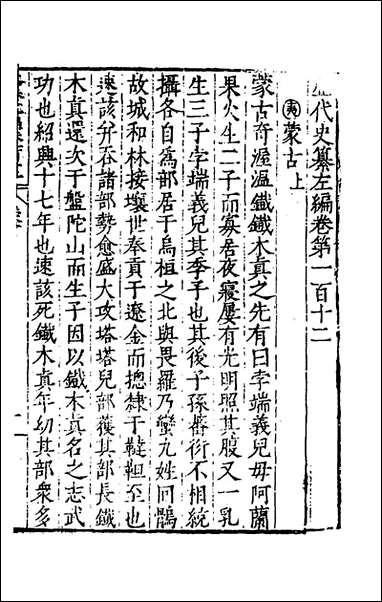 歴代史纂左編卷第一百十二
夷蒙古上
蒙古奇渥温鐵木真之先有曰孛端義兒母阿蘭
果火生二子而寡居夜寢屢有光明照其腹又一乳
生三子孛端義兒其季子也其後子孫蕃衍不相統
攝各自爲部居于烏桓之北與畏羅乃蠻九姓回鶻
故城和林接壤世奉貢于遼金而揔隸于韃靼至也
速該并吞諸部勢愈盛大攻塔塔兒部獲其部長鐵
木真還次于盤陀山而生子因以鐵木真名之志武
功也紹興十七年也速該死鐵木真年幼其部衆多